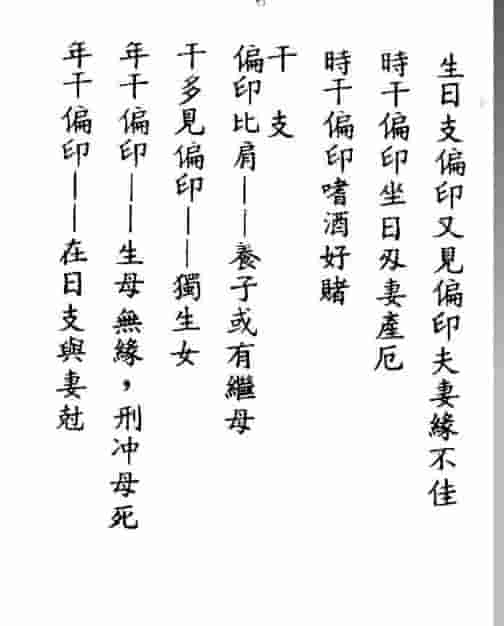 生日支偏印又見偏印夫妻緣不佳
時干偏印坐日刄妻產厄
時干偏印嗜酒好賭
干支
偏印比肩——養子或有繼母
干多見偏印——獨生女
年干偏印——生母無緣，刑冲母死
年干偏印——在日支與妻尅